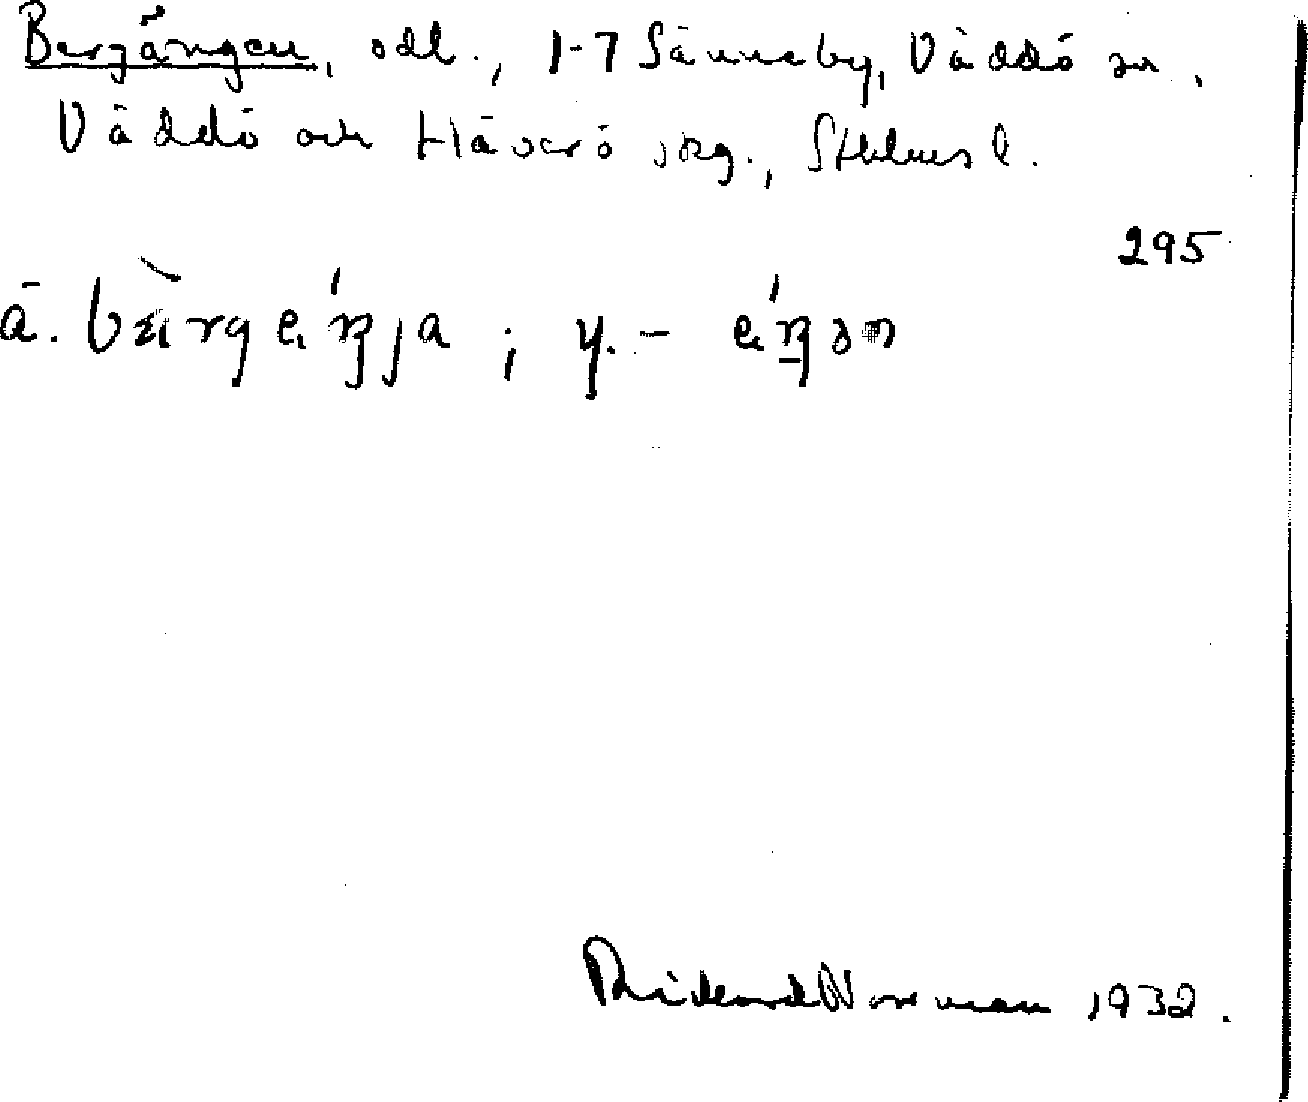 Bergängen, odl., 1-7 Sänneby, Väddö sn,
Väddö och Häverö skg., Sthlms l.
295
ä. bærgeŋja; y. - eŋən
Rickard Norman 1932.